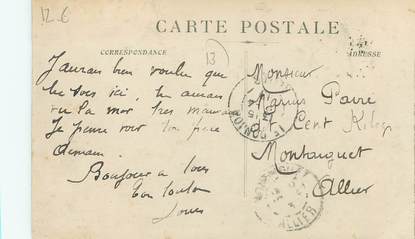 12_6
CARTE POSTALE
CORRESPONDANCE
ADRESSE
13
J'aurais bien voulu que
tu sois ici, tu aurais
vu la mer très mauvaise
Je pense voir ton père
demain.
Bonjour a tous
ton
Monsieur
Marius
Cent
Montaiguet
Allier
ALLIER